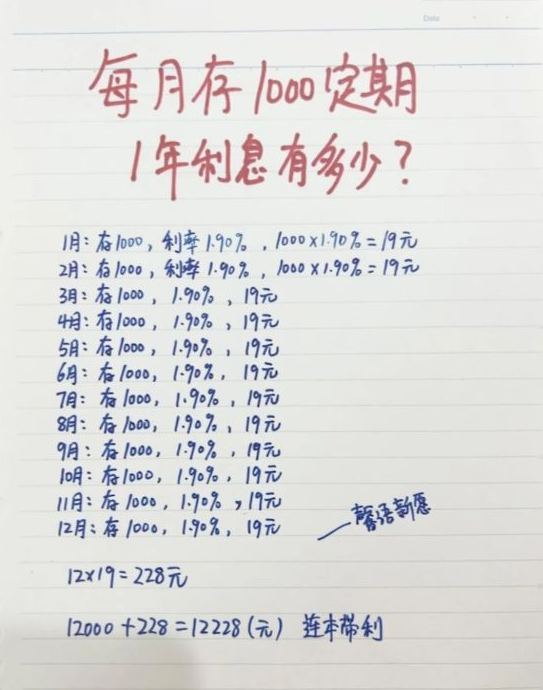 Date
每月存1000定期
1年利息有多少?
1月: 存1000, 利率1.90%, 1000×1.90%=19元
2月: 存1000, 利率1.90%, 1000×1.90%=19元
3月: 存1000, 1.90%, 19元
4月: 存1000, 1.90%, 19元
5月: 存1000, 1.90%, 19元
6月: 存1000, 1.90%, 19元
7月: 存1000, 1.90%, 19元
8月: 存1000, 1.90%, 19元
9月: 存1000, 1.90%, 19元
10月: 存1000, 1.90%, 19元
11月: 存1000, 1.90%, 19元
12月: 存1000, 1.90%, 19元
馨语新愿
12×19=228元
12000+228=12228(元) 连本带利